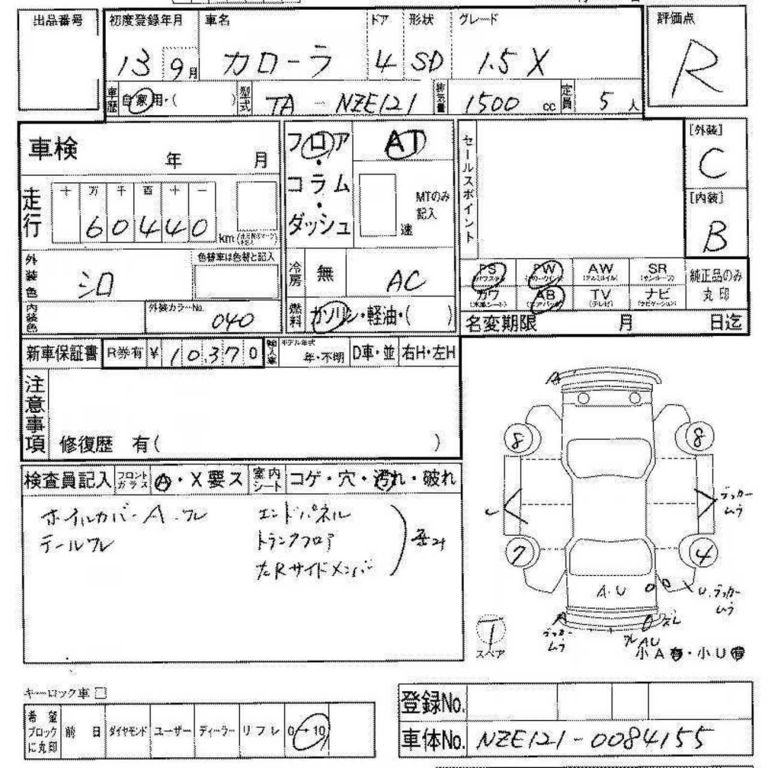 出品番号
初度登録年月 車名 ドア 形状 グレード 評価点
13 9月 カローラ 4 SD 1.5X R
車歴 自家用・( ) 型式 TA-NZE121 排気量 1500 cc 定員 5 人
車検 年 月
フロア・コラム・ダッシュ AT
MTのみ記入 速
セールスポイント
[外装]
C
[内装]
B
走行 十 万 千 百 十 一
60440 km
外装色 シロ 色替車は色替と記入
内装色 外装カラーNo. 040
冷房 無 AC
燃料 ガソリン・軽油・( )
PS PW AW SR
(パワステ) (パワーウィンド) (アルミホイル) (サンルーフ)
カワ AB TV ナビ
(本革シート) (エアバック) (テレビ) (ナビゲーション)
純正品のみ丸印
名変期限 月 日迄
新車保証書 R券有 ¥10370 輸入車 モデル年式 年・不明 D車・並 右H・左H
注意事項
修復歴 有( )
検査員記入 フロントガラス A・X要ス 室内シート コゲ・穴・汚れ・破れ
ホイルカバーA.ワレ エンドパネル
テールワレ トランクフロア
サイドメンバー
A
8 8
7 4
A.U
1
スペア
A
AU
小A有・小U有
キーロック車 □
希望ブロックに丸印 前日 ダイヤモンド ユーザー ディーラー リフレ 0→10
登録No.
車体No. NZE121-0084155